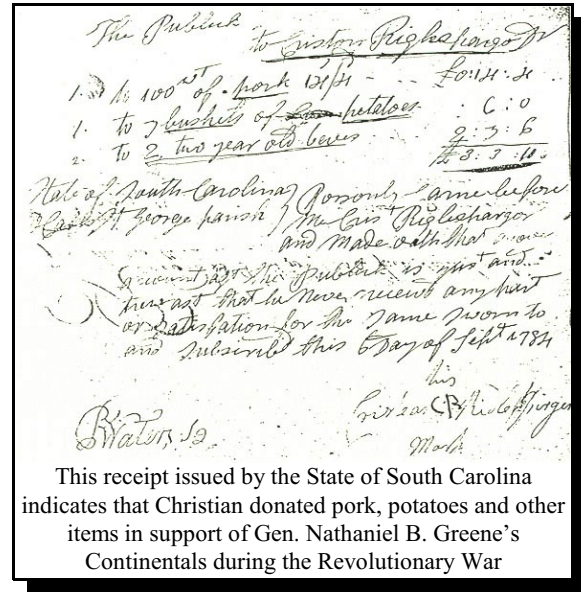 The Publick
to Criston Riglespargor Dr
1. to 100 wt of pork 14/4 £0:14:4
1. to 7 bushels of potatoes : 6:0
2. to 2 two year old beeves 2:3:6
£3:3:10
State of South Carolina
St George parish
Personly Came before
me Cris Riglespargor
and made oath that
account agt the Publick is just and
true and that he Never receivd any part
or Satisfation for the Same Sworn to
and Subscribd this 6 Day of Sept 1784
his
CR
Mark
This receipt issued by the State of South Carolina
indicates that Christian donated pork, potatoes and other
items in support of Gen. Nathaniel B. Greene’s
Continentals during the Revolutionary War